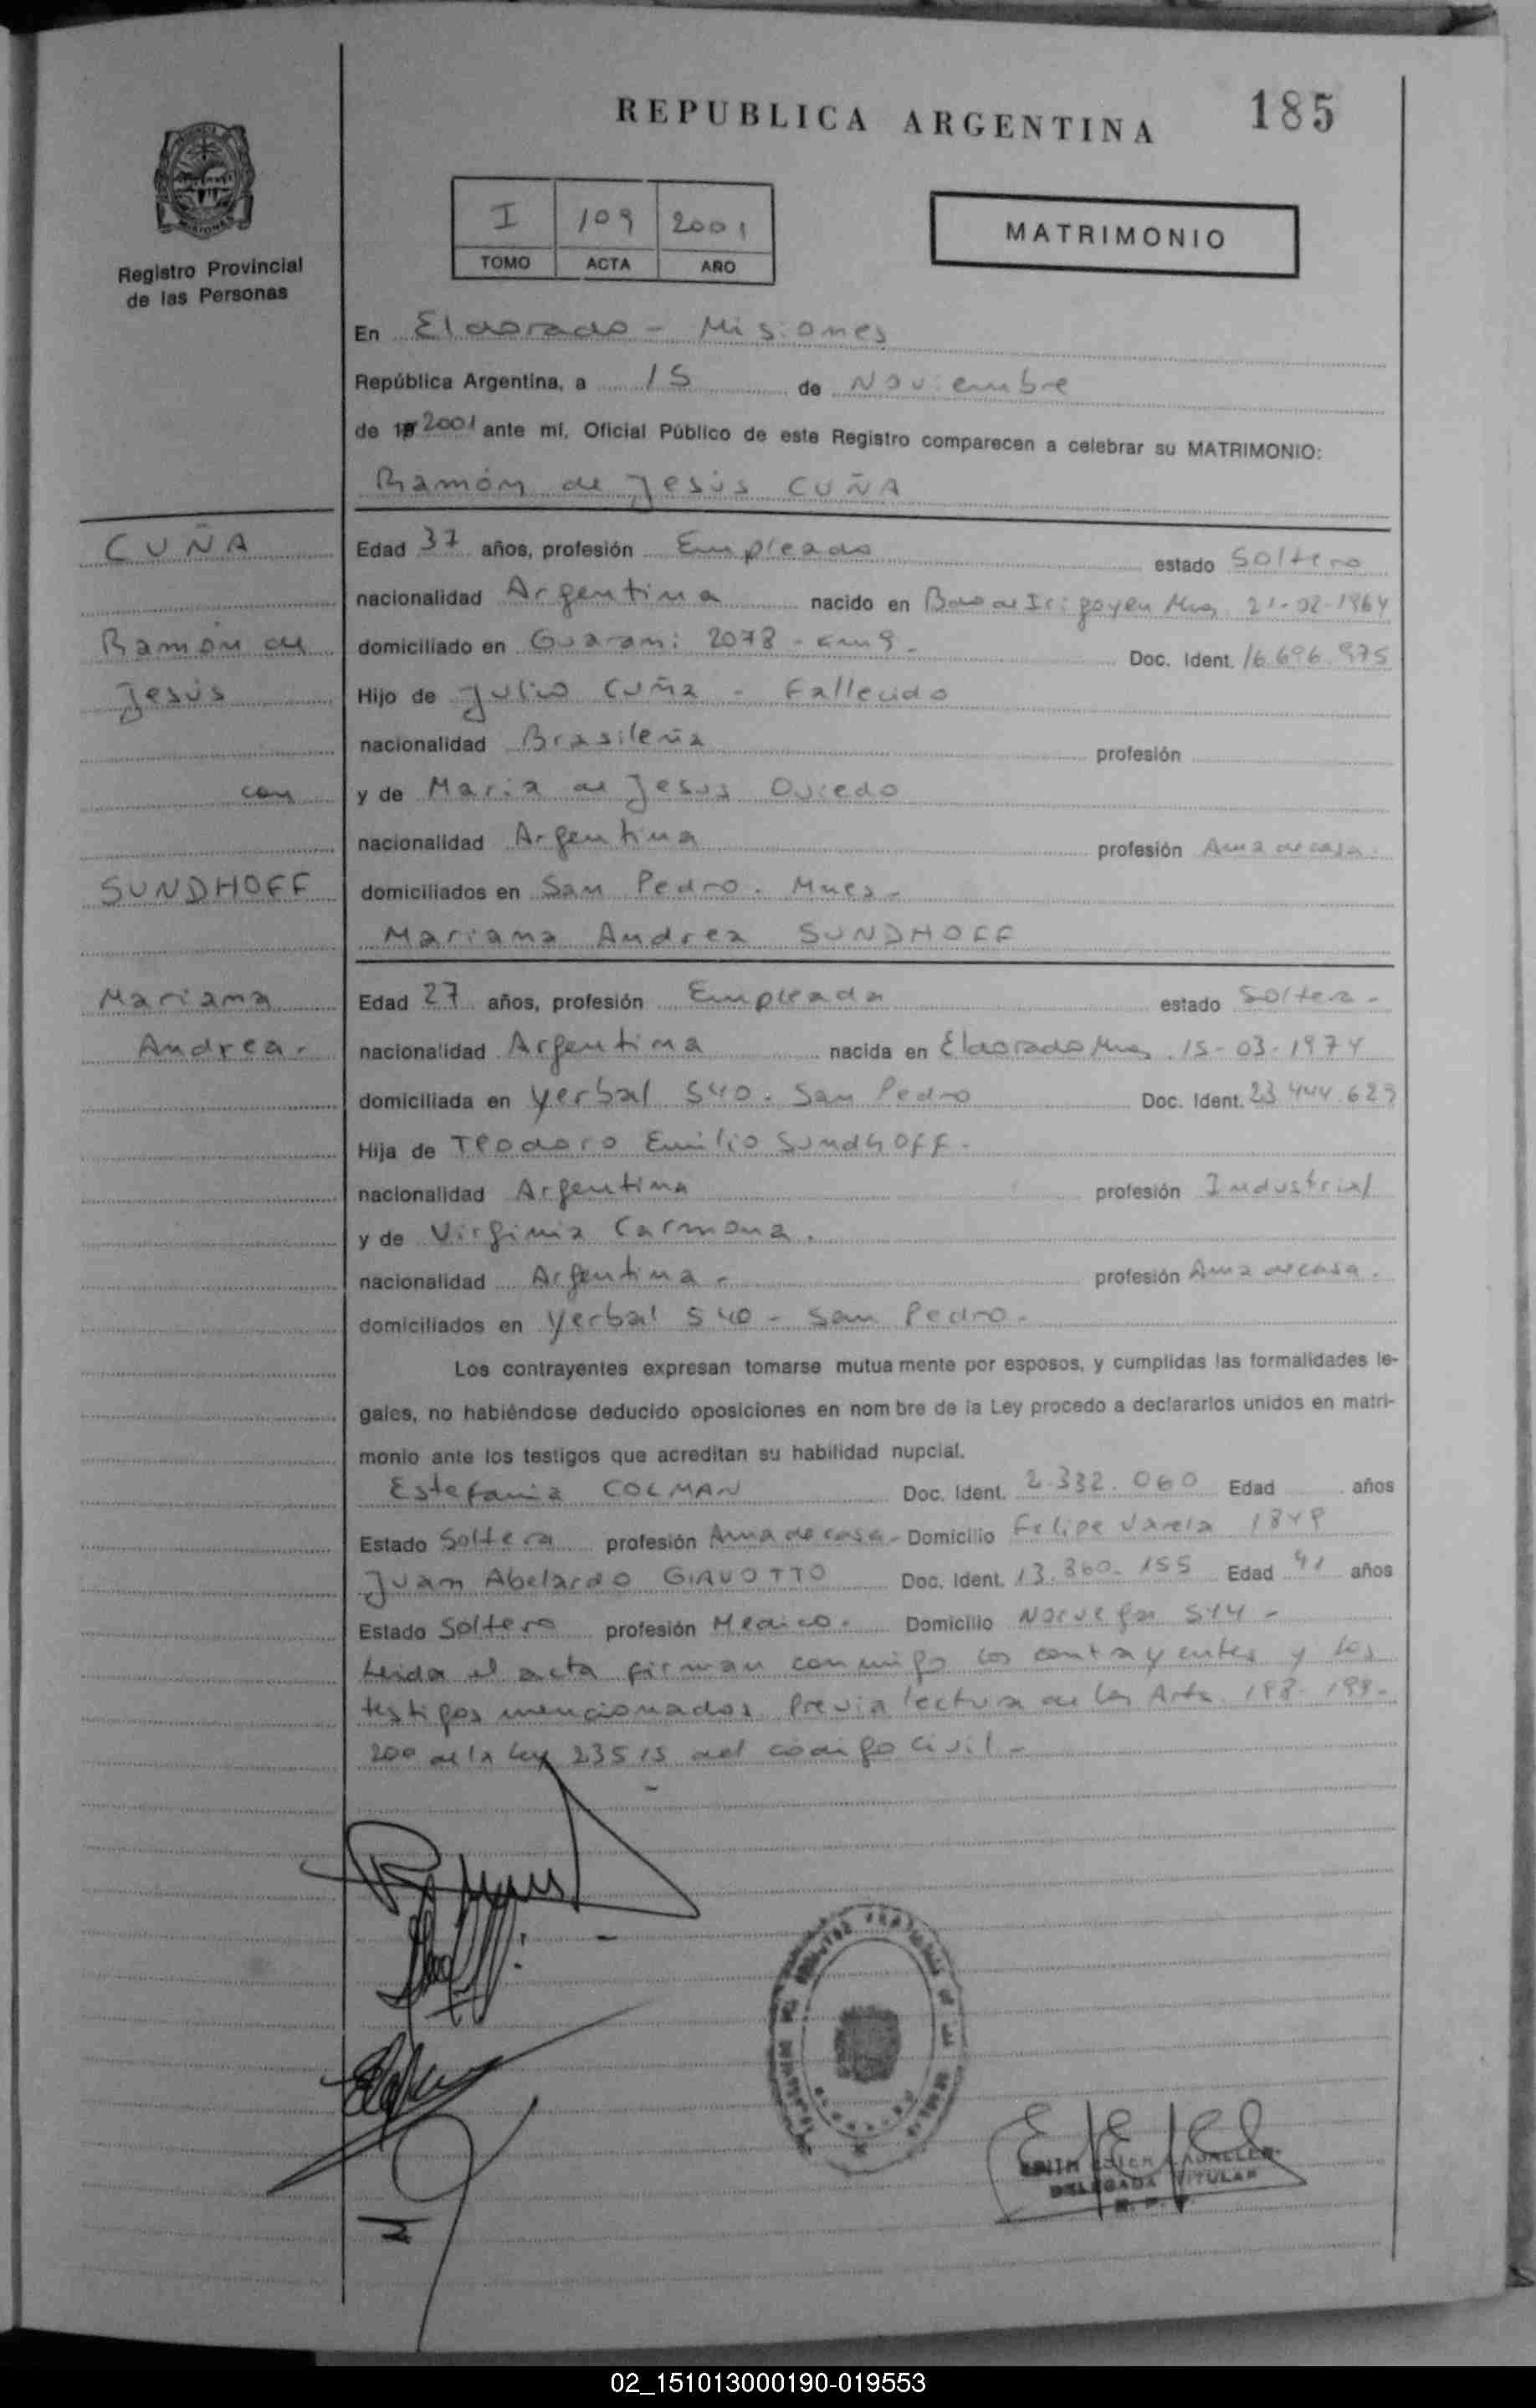 REPUBLICA ARGENTINA
185
I 109 2001
TOMO ACTA AÑO
MATRIMONIO
Registro Provincial
de las Personas
En Eldorado - Misiones
República Argentina, a 15 de Noviembre
de 19 2001 ante mí, Oficial Público de este Registro comparecen a celebrar su MATRIMONIO:
Ramón de Jesús CUÑA
CUÑA
Edad 37 años, profesión Empleado estado Soltero
nacionalidad Argentina nacido en Bdo de Irigoyen Mnes 21-02-1964
Ramón de
domiciliado en Guarani 2078 - Km 9. Doc. Ident. 16.696.975
Jesús
Hijo de Julio Cuña - Fallecido
nacionalidad Brasileña profesión
con
y de Maria de Jesus Oviedo
nacionalidad Argentina profesión Ama de casa.
SUNDHOFF
domiciliados en San Pedro. Mnes-
Mariana Andrea SUNDHOFF
Mariana
Edad 27 años, profesión Empleada estado Soltera-
Andrea.
nacionalidad Argentina nacida en Eldorado Mnes. 15-03-1974
domiciliada en Yerbal 540. San Pedro Doc. Ident. 23.444.629
Hija de Teodoro Emilio Sundhoff-
nacionalidad Argentina profesión Industrial
y de Virginia Carmona.
nacionalidad Argentina- profesión Ama de casa.
domiciliados en Yerbal 540 - San Pedro-
Los contrayentes expresan tomarse mutua mente por esposos, y cumplidas las formalidades le-
gales, no habiéndose deducido oposiciones en nom bre de la Ley procedo a declararlos unidos en matri-
monio ante los testigos que acreditan su habilidad nupcial.
Estefania COLMAN Doc. Ident. 2.332.060 Edad años
Estado Soltera profesión Ama de casa- Domicilio Felipe Varela 1849
Juan Abelardo GIAVOTTO Doc. Ident. 13.360.155 Edad 41 años
Estado Soltero profesión Medico. Domicilio Noruega 514-
Leida el acta firman conmigo los contrayentes y los
testigos mencionados. Previa lectura de los Arts. 198-199-
200 de la Ley 23515 del código civil-
DELEGADA TITULAR
R. P. P.
02_151013000190-019553